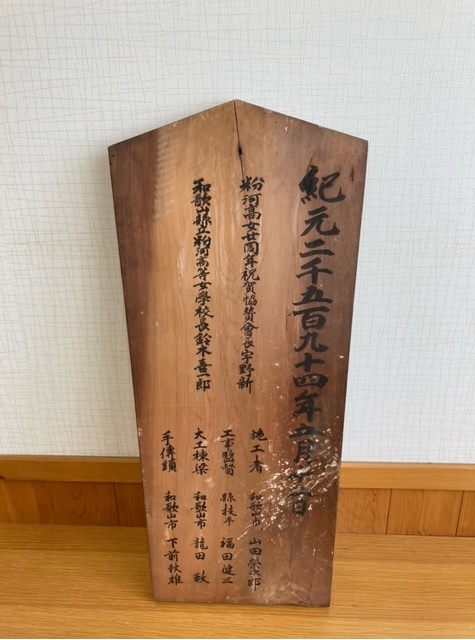 紀元二千五百九十四年
粉河高女廿周年祝賀協賛會長宇野新
和歌山縣立粉河高等女學校長鈴木喜一郎
施工者 和歌山市 山田榮次郎
工事監督 縣技手 福田健三
大工棟梁 和歌山市 龍田
手傳頭 和歌山市 下前秋雄